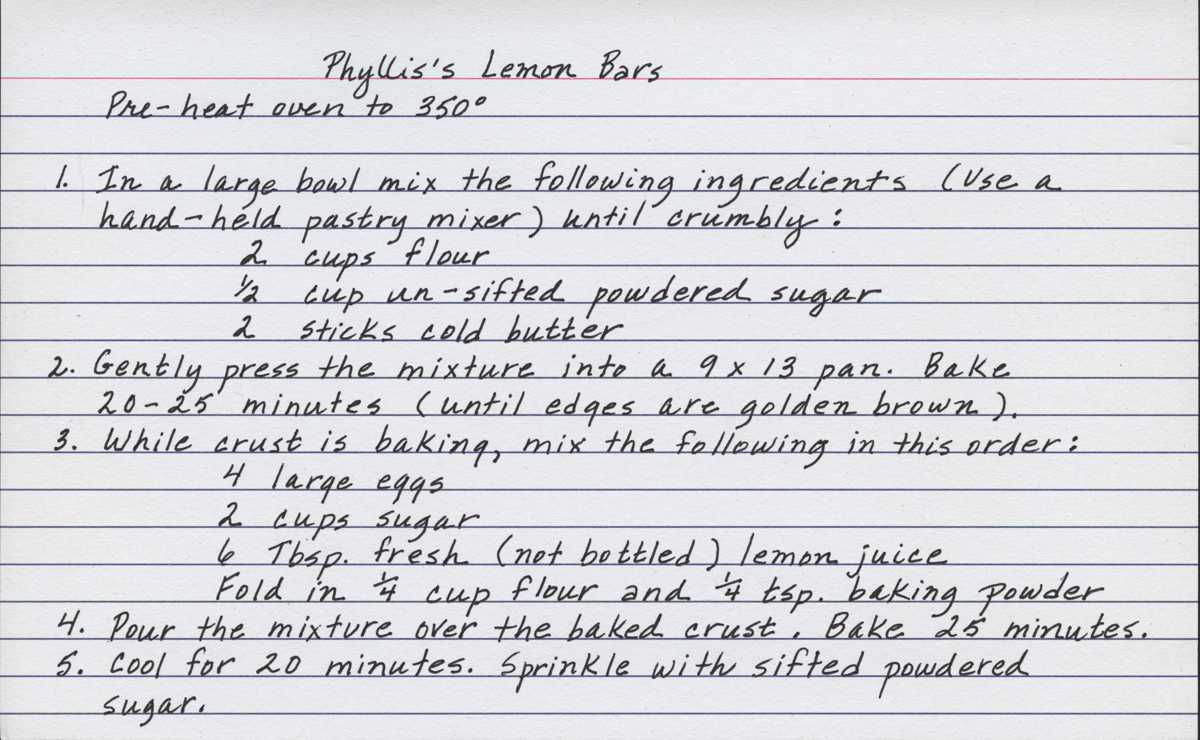 Phyllis's Lemon Bars
Pre-heat oven to 350°
1. In a large bowl mix the following ingredients (Use a
hand-held pastry mixer) until crumbly:
2 cups flour
1/2 cup un-sifted powdered sugar
2 sticks cold butter
2. Gently press the mixture into a 9 x 13 pan. Bake
20-25 minutes (until edges are golden brown).
3. While crust is baking, mix the following in this order:
4 large eggs
2 cups sugar
6 Tbsp. fresh (not bottled) lemon juice
Fold in 1/4 cup flour and 1/4 tsp. baking powder
4. Pour the mixture over the baked crust. Bake 25 minutes.
5. Cool for 20 minutes. Sprinkle with sifted powdered
sugar.